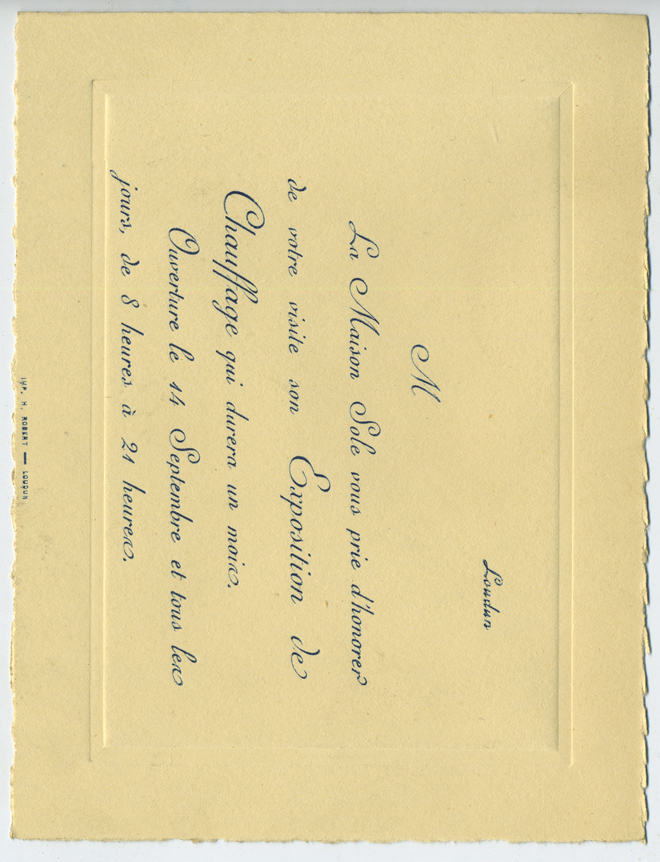 Loudun
M
La Maison Sole vous prie d'honorer
de votre visite son Exposition de
Chauffage qui durera un mois.
Ouverture le 14 Septembre et tous les
jours, de 8 heures à 21 heures.
TYP. H. ROBERT — LOUDUN.